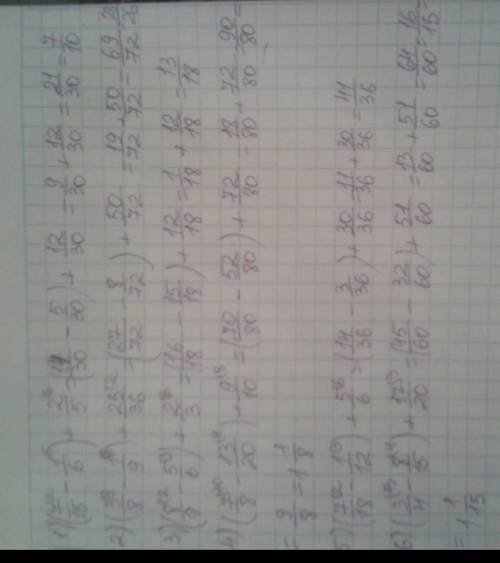 1) (7/15 - 1/6) + 2/5 = (14/30 - 5/30) + 12/30 = 9/30 + 12/30 = 21/30 = 7/10
2) (3/8 - 1/9) + 25/36 = (27/72 - 8/72) + 50/72 = 19/72 + 50/72 = 69/72
3) (8/9 - 5/6) + 2/3 = (16/18 - 15/18) + 12/18 = 1/18 + 12/18 = 13/18
4) (7/8 - 13/20) + 9/10 = (70/80 - 52/80) + 72/80 = 18/80 + 72/80 = 90/80
= 9/8 = 1 1/8
5) (7/18 - 1/12) + 5/6 = (14/36 - 3/36) + 30/36 = 11/36 + 30/36 = 41/36
6) (3/4 - 8/15) + 17/20 = (45/60 - 32/60) + 51/60 = 13/60 + 51/60 = 64/60 = 16/15 =
= 1 1/15